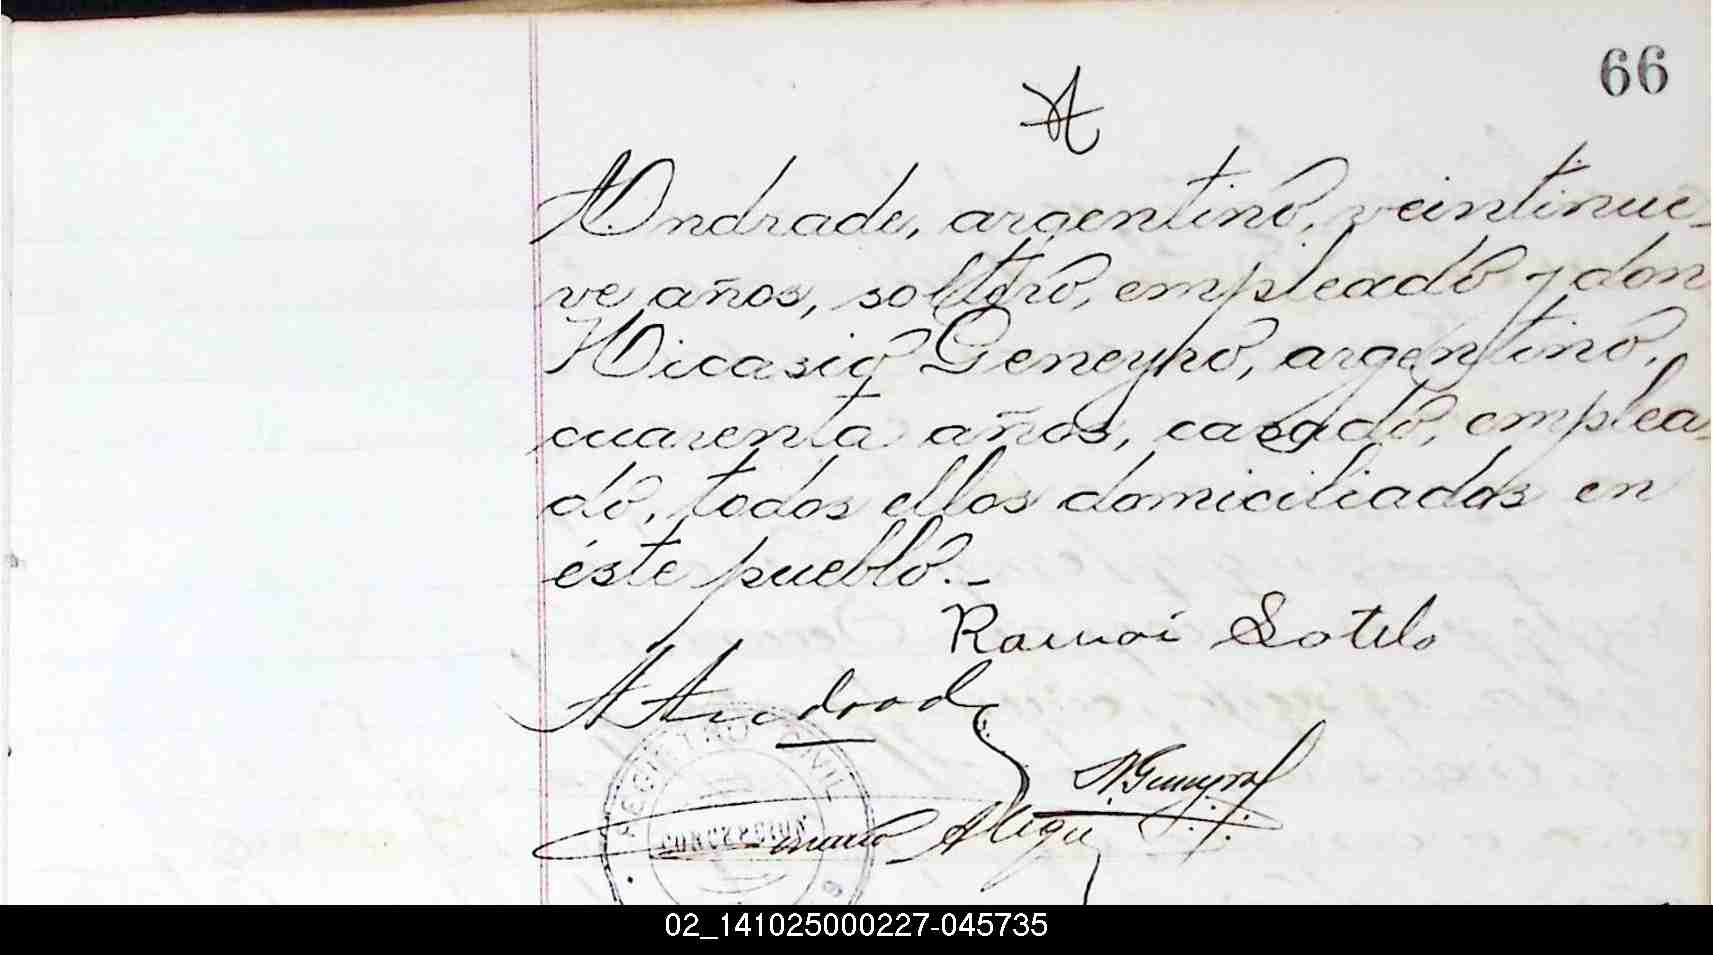 66
A
Andrade, argentino, veintinue-
ve años, soltero, empleado y don
Nicasio Geneyro, argentino,
cuarenta años, casado, emplea-
do, todos ellos domiciliados en
éste pueblo.-
Ramón Sotelo
A Andrade
N. Geneyro
REGISTRO CIVIL
CONCEPCION
02_141025000227-045735